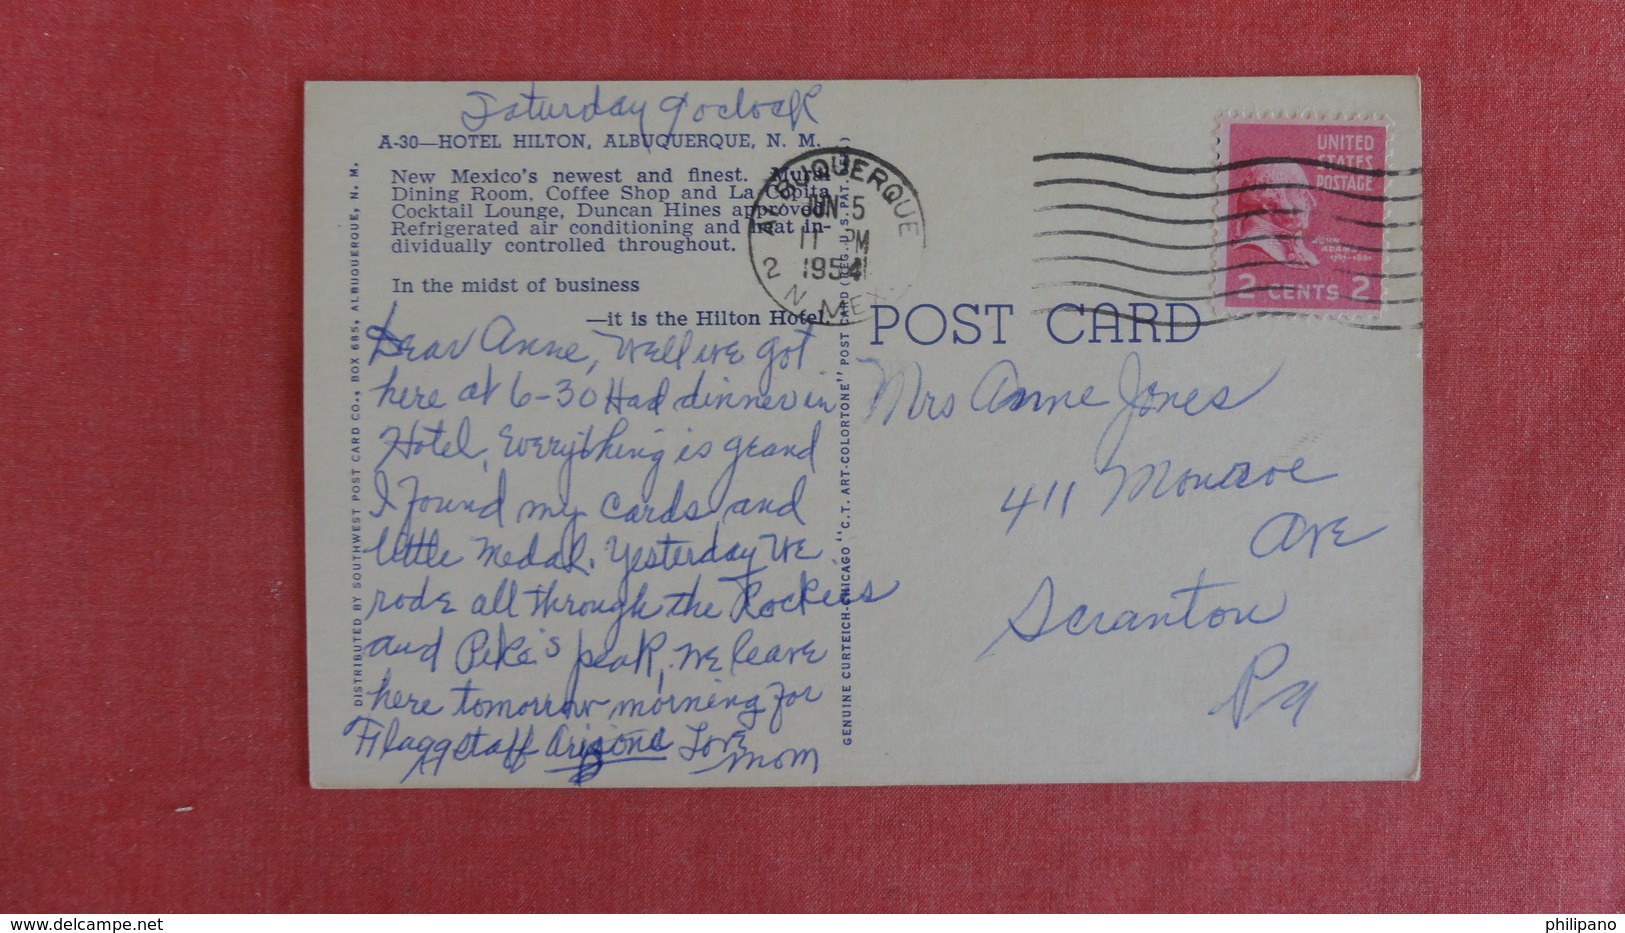 Saturday 9 oclock
A-30—HOTEL HILTON, ALBUQUERQUE, N. M.
New Mexico's newest and finest. Mural
Dining Room, Coffee Shop and La Copita
Cocktail Lounge, Duncan Hines approved.
Refrigerated air conditioning and heat in-
dividually controlled throughout.
In the midst of business
—it is the Hilton Hotel.
Dear Anne, Well we got
here at 6-30 Had dinner in
Hotel, Everything is grand
I found my cards and
little medal. Yesterday We
rode all through the Rockies
and Pike's peak, we leave
here tomorrow morning for
Flaggstaff Arizona Love
Mom
DISTRIBUTED BY SOUTHWEST POST CARD CO., BOX 685, ALBUQUERQUE, N. M.
GENUINE CURTEICH-CHICAGO "C.T. ART-COLORTONE" POST CARD (REG. U. S. PAT.
ALBUQUERQUE
JUN 5
11 PM
1954
2 N. MEX.
UNITED
STATES
POSTAGE
JOHN
ADAMS
1797-1801
2 CENTS 2
POST CARD
Mrs Anne Jones
411 Monroe
Ave
Scranton
Pa
http://www.delcampe.net
philipano